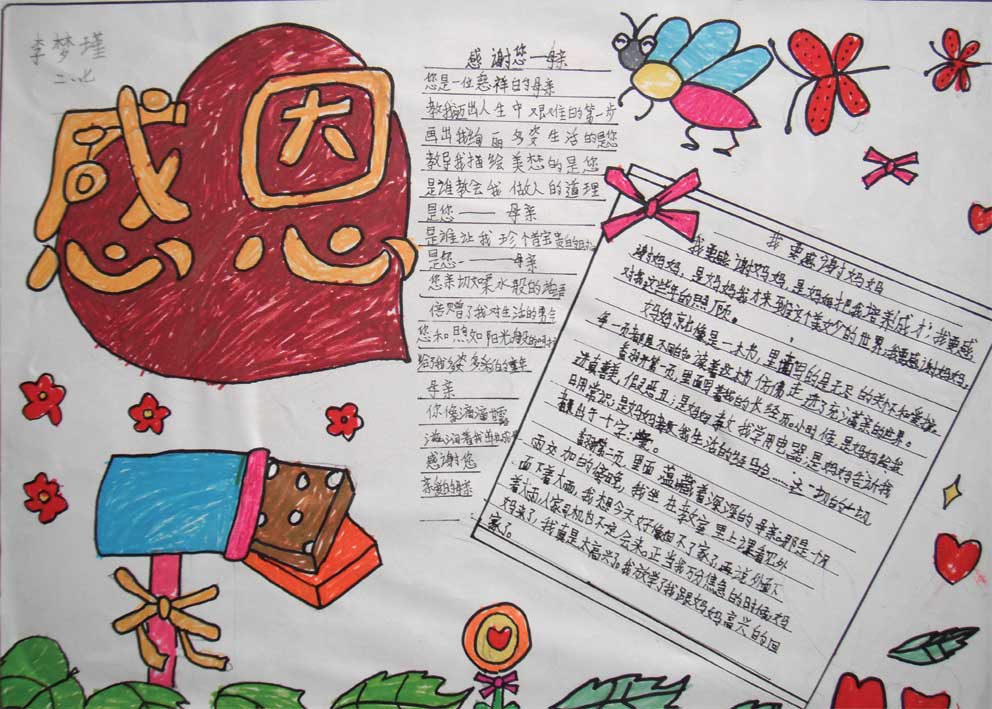 李梦瑾
二、七
感恩
感谢您—母亲
您是一位慈祥的母亲
教我迈出人生中艰难的第一步
画出我绚丽多姿生活的是您
教导我描绘美梦的是您
是谁教会我做人的道理
是您——母亲
是谁让我珍个昔宝贵的
是您——母亲
您亲切柔水般的话语
倍赠了我对生活的勇
您和照如阳光般的
给了我多姿多彩的童年
母亲
你像滴滴甘露
滋润着我
感谢您
亲爱的母亲
我要感谢妈妈
我要感谢妈妈,是妈妈把我培养成才,我要感
谢妈妈,是妈妈我才来到这个美妙的世界,我要感谢妈妈,
对我这些年的照顾。
妈妈就像是一本书,里面写的是无尽的关怀和爱护,
每一页都是不同的
翻开第一页,里面写着我的长经历。小时候,是妈妈给我
讲真善美,假恶丑;是妈妈教我学用电器,是妈妈告诉我
日用常识;是妈妈教我生活的
翻一页,里面蕴藏着深深的母亲。那是一个风
雨交加的傍晚,我坐在教室里上课,看见外
面下着大雨,我想今天好像回不了家了,再说外面下
着大雨,人家司机也不定会来。正当我万分焦急的时候,妈
妈来了,我真是太高兴了。我放学了我跟妈妈高兴的回
家了。